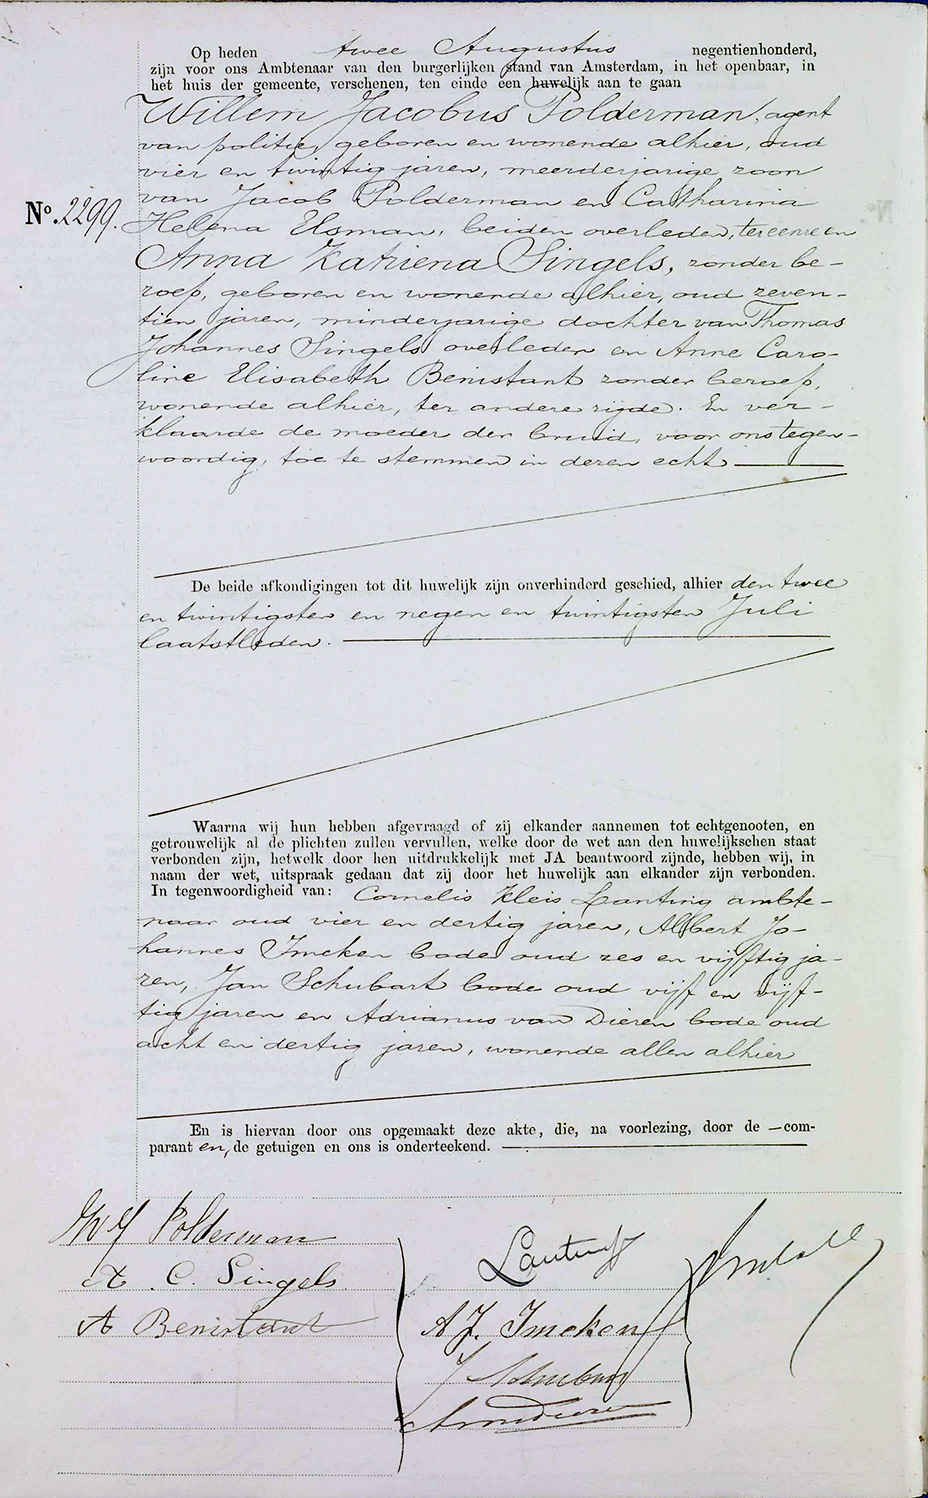 Op heden twee Augustus negentienhonderd,
zijn voor ons Ambtenaar van den burgerlijken stand van Amsterdam, in het openbaar, in
het huis der gemeente, verschenen, ten einde een huwelijk aan te gaan
Willem Jacobus Polderman, agent
van politie, geboren en wonende alhier, oud
vier en twintig jaren, meerderjarige zoon
van Jacob Polderman en Catharina
No. 2299.
Helena Elsman, beiden overleden, ter eenre en
Anna Katriena Singels, zonder be-
roep, geboren en wonende alhier, oud zeven-
tien jaren, minderjarige dochter van Thomas
Johannes Singels overleden en Anne Caro-
line Elisabeth Benistant zonder beroep,
wonende alhier, ter andere zijde. En ver-
klaarde de moeder der bruid, voor ons tegen-
woordig, toe te stemmen in deren echt
De beide afkondigingen tot dit huwelijk zijn onverhinderd geschied, alhier den twee
en twintigsten en negen en twintigsten Juli
laatstleden.
Waarna wij hun hebben afgevraagd of zij elkander aannemen tot echtgenooten, en
getrouwelijk al de plichten zullen vervullen, welke door de wet aan den huwelijkschen staat
verbonden zijn, hetwelk door hen uitdrukkelijk met JA beantwoord zijnde, hebben wij, in
naam der wet, uitspraak gedaan dat zij door het huwelijk aan elkander zijn verbonden.
In tegenwoordigheid van: Cornelis Kleis Lanting ambte-
naar oud vier en dertig jaren, Albert Jo-
hannes Imeken bode oud zes en vijftig ja-
ren, Jan Schubart bode oud vijf en vijf-
tig jaren en Adrianus van Dieren bode oud
acht en dertig jaren, wonende allen alhier
En is hiervan door ons opgemaakt deze akte, die, na voorlezing, door de — com-
parant en, de getuigen en ons is onderteekend.
W J Polderman
A C. Singels
A Benistant
Lanting
A J. Imeken
J Schubart
A van Dieren